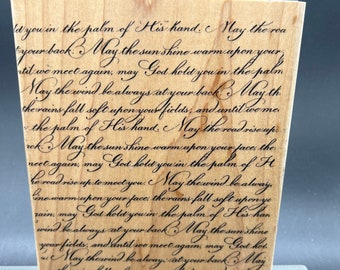 d you in the palm of His hand. May the roa
your back. May the sun shine warm upon your
til we meet again, may God hold you in the palm
May the wind be always at your back. May th
the rains fall soft upon your fields, and until we me
the palm of His hand. May the road rise up
ck. May the sun shine warm upon your face, the
meet again, may God hold you in the palm of H
he road rise up to meet you. May the wind be alway
ine warm upon your face, the rains fall soft upon
gain, may God hold you in the palm of His han
wind be always at your back. May the sun shine
your fields, and until we meet again, may God hol
. May the wind be always at your back. May